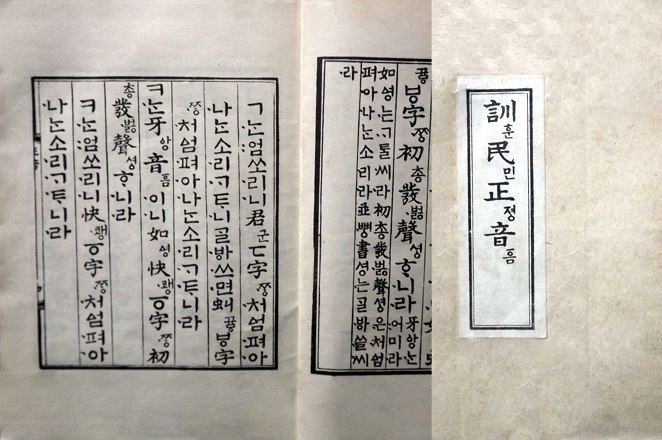 訓훈民민正졍音ᅙᅳᆷ
뀨ᇢㅸ字ᄍᆞᆼ初총發버ᇙ聲셩ᄒᆞ니라牙앙ᄂᆞᆫ어미라
如ᅀᅧᆼᄂᆞᆫᄀᆞᄐᆞᆯ씨라初총發버ᇙ聲셩은처ᅀᅥᆷ
펴아나ᄂᆞᆫ소리라並뼝書셩ᄂᆞᆫᄀᆞᆯᄫᅡ쓸씨
라
ㄱᄂᆞᆫ엄쏘리니君군ㄷ字ᄍᆞᆼ처ᅀᅥᆷ펴아
나ᄂᆞᆫ소리ᄀᆞᄐᆞ니ᄀᆞᆯᄫᅡ쓰면虯뀨ᇢㅸ字
ᄍᆞᆼ처ᅀᅥᆷ펴아나ᄂᆞᆫ소리ᄀᆞᄐᆞ니라
ㅋᄂᆞᆫ牙앙音ᅙᅳᆷ이니如ᅀᅧᆼ快쾡ㆆ字ᄍᆞᆼ初
총發버ᇙ聲셩ᄒᆞ니라
ㅋᄂᆞᆫ엄쏘리니快쾡ㆆ字ᄍᆞᆼ처ᅀᅥᆷ펴아
나ᄂᆞᆫ소리ᄀᆞᄐᆞ니라